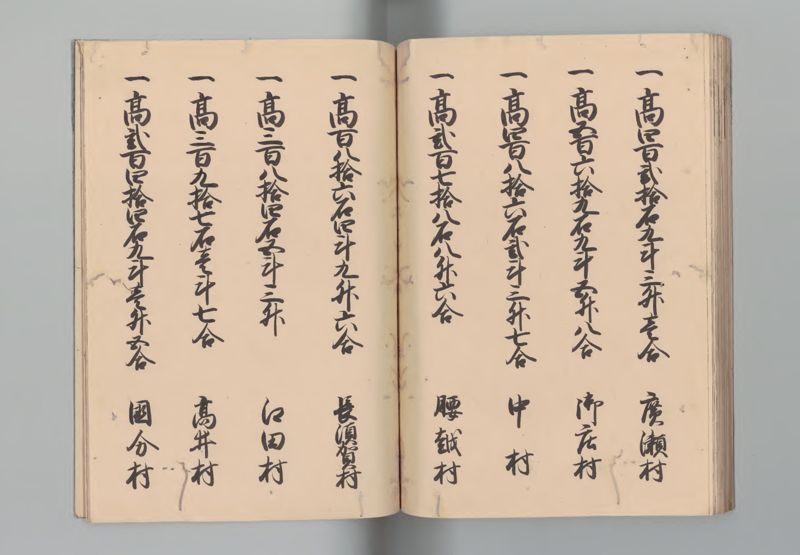 一高四百弐拾石九斗三升壱合 廣瀬村
一高五百六拾九石九斗五升八合 御庄村
一高四百八拾六石弐斗三升七合 中村
一高弐百七拾八石八升六合 腰越村
一高百八拾六石四斗九升六合 長須賀村
一高三百八拾四石五斗三升 江田村
一高三百九拾七石壱斗七合 高井村
一高弐百四拾四石九斗壱升五合 國分村